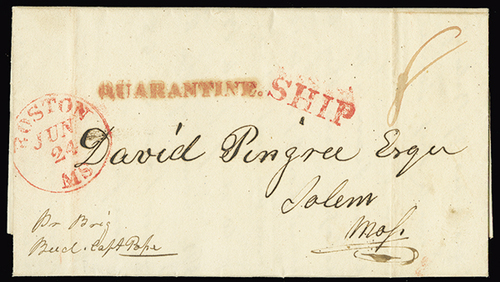 QUARANTINE. SHIP
8
BOSTON
JUN
24
MS
David Pingree Esqr
Salem
Mass.
Pr Brig
Capt Pope